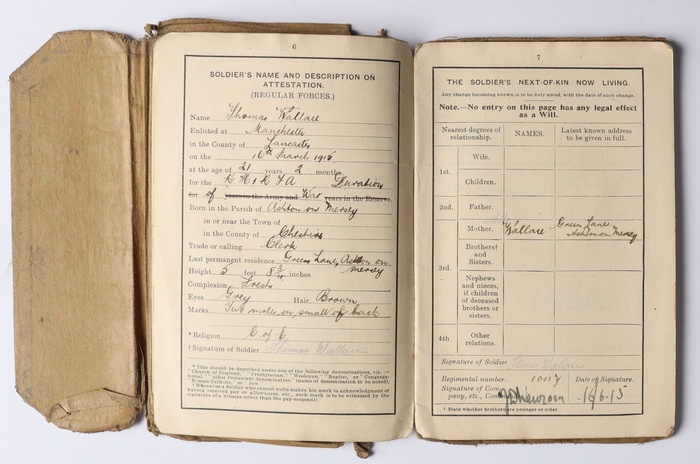 6
SOLDIER'S NAME AND DESCRIPTION ON
ATTESTATION.
(REGULAR FORCES.)
Name Thomas Wallace
Enlisted at Manchester
in the County of Lancaster
on the 16th March 1915
at the age of 21 years 2 months
for the R H & R F A Duration
for of years in the Army and War years in the Reserve.
Born in the Parish of Ashton on Mersey
in or near the Town of
in the County of Cheshire
Trade or calling Clerk
Last permanent residence Green Lane, Ashton on
Mersey
Height 5 feet 8 3/4 inches
Complexion Fresh
Eyes Grey Hair Brown
Marks Two moles on small of back
* Religion C of E
† Signature of Soldier Thomas Wallace
* This should be described under one of the following denominations, viz.:—
"Church of England," "Presbyterian," "Wesleyan," "Baptist, or Congrega-
tional," "other Protestant denomination" (name of denomination to be noted),
"Roman Catholic," or "Jew."
† Whenever a Soldier who cannot write makes his mark in acknowledgment of
having received pay or allowances, etc., such mark is to be witnessed by the
signature of a witness other than the pay-sergeant.
7
THE SOLDIER'S NEXT-OF-KIN NOW LIVING.
Any change becoming known is to be duly noted, with the date of such change.
Note.—No entry on this page has any legal effect
as a Will.
Nearest degrees of relationship. NAMES. Latest known address to be given in full.
1st. Wife.
Children.
2nd. Father.
Mother. Wallace Green Lane
Ashton on Mersey
3rd. Brothers†
and
Sisters.
Nephews
and nieces,
if children
of deceased
brothers or
sisters.
4th. Other
relations.
Signature of Soldier Thomas Wallace
Regimental number. 10117 Date of Signature.
Signature of Com-
pany, etc., 16/6-15
† State whether brothers are younger or older